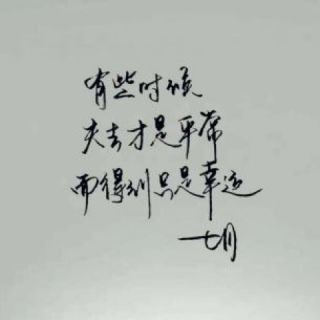 有些时候
失去才是平常
而得到只是幸运
一七月